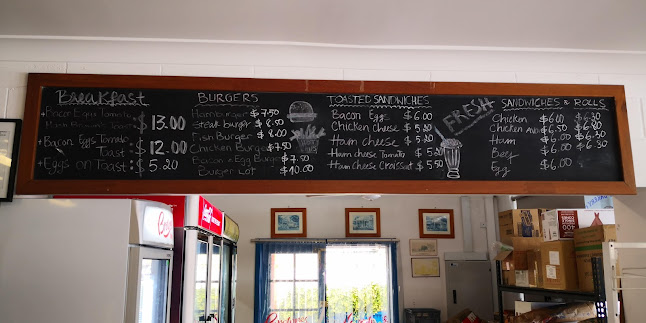 Breakfast
Bacon Eggs Tomato
Toast $13.00
Bacon Eggs Tomato
Toast $12.00
Eggs on Toast $5.20
BURGERS
Hamburger $7.50
Steak Burger $8.50
Fish Burger $8.00
Chicken Burger $7.50
Bacon & Egg Burger $7.50
Burger Lot $10.00
TOASTED SANDWICHES
Bacon Egg $6.00
Chicken Cheese $5.20
Ham cheese $5.20
Ham cheese Tomato $5.20
Ham cheese Croissant $5.20
FRESH
SANDWICHES & ROLLS
Chicken $6.00 $6.30
Chicken $6.50 $6.80
Ham $6.00 $6.30
Beef $6.00 $6.30
Egg $6.00